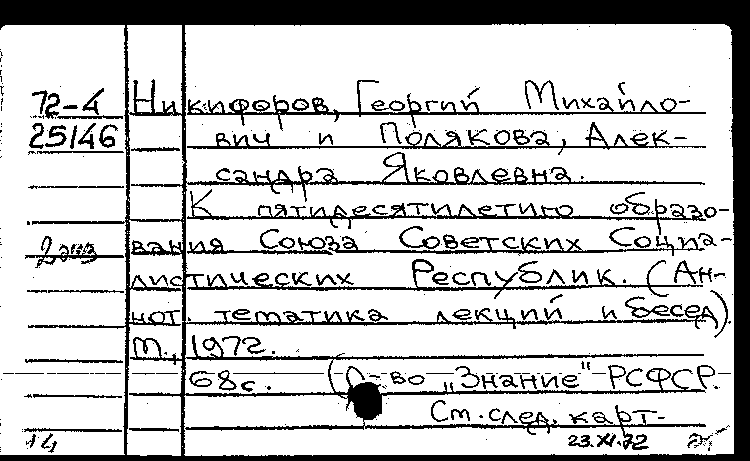 72-4 Никифоров, Георгий Михайло-
25146 вич и Полякова, Алек-
сандра Яковлевна.
К пятидесятилетию образо-
2 экз вания Союза Советских Социа-
листических Республик. (Ан-
нот. тематика лекций и бесед)
М., 1972.
68 с. (О-во „Знание" РСФСР.
См. след. карт-
14 23.XI.72